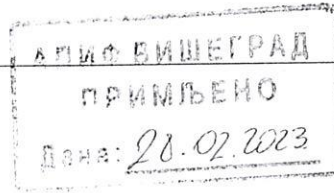 АЛИФ ВИШЕГРАД
ПРИМЉЕНО
Дана: 28.02.2023